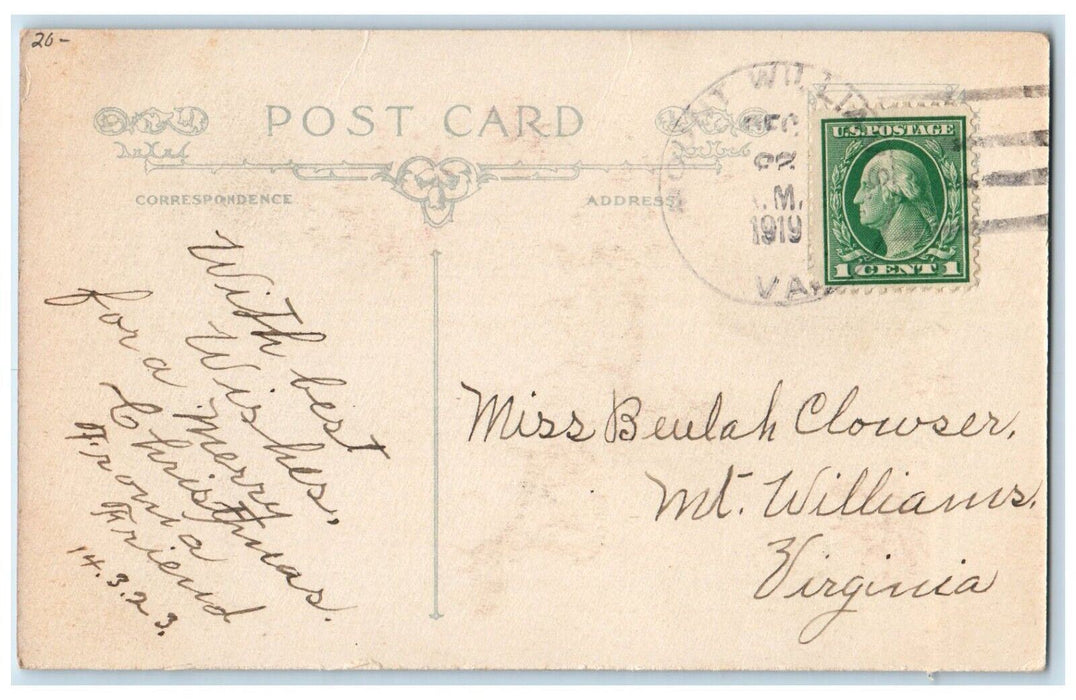 20-
POST CARD
CORRESPONDENCE
ADDRESS
MOUNT WILLIAMS
DEC
22
.M.
1919
VA.
U.S. POSTAGE
1 CENT 1
With best
Wishes,
for a Merry
Christmas.
From a
Friend
14.3.23.
Miss Beulah Clowser,
Mt. Williams,
Virginia